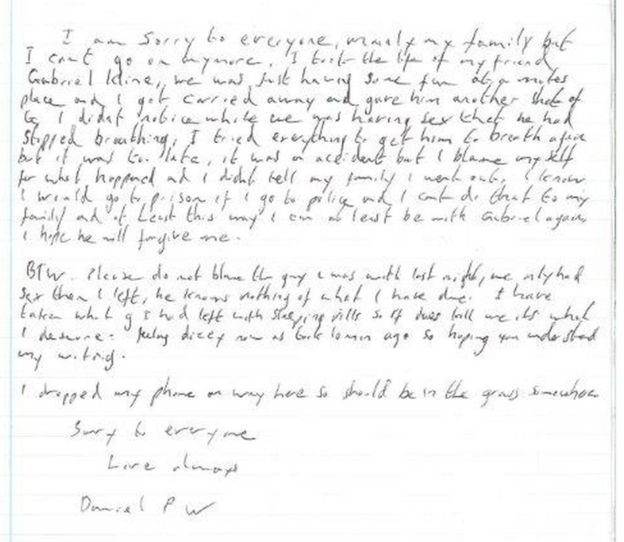 I am sorry to everyone, mainly my family but
I cant go on anymore, I took the life of my friend
Gabriel Kline, we was just having some fun at a mates
place and I got carried away and gave him another shot of
G. I didnt notice while we was having sex that he had
stopped breathing, I tried everything to get him to breath again
but it was to late, it was an accident but I blame myself
for what happened and I didnt tell my family I went out. I know
I would go to prison if I go to police and I cant do that to my
family and at least this way I can at least be with Gabriel again,
I hope he will forgive me.
BTW. Please do not blame the guy I was with last night, we only had
sex then I left, he knows nothing of what I have done. I have
taken what g I had left with sleeping pills so if it does kill me its what
I deserve. Feeling dizzy now as took 10 min ago so hoping you understand
my writing.
I dropped my phone on way here so should be in the grass somewhere
Sorry to everyone
Love always
Daniel P W